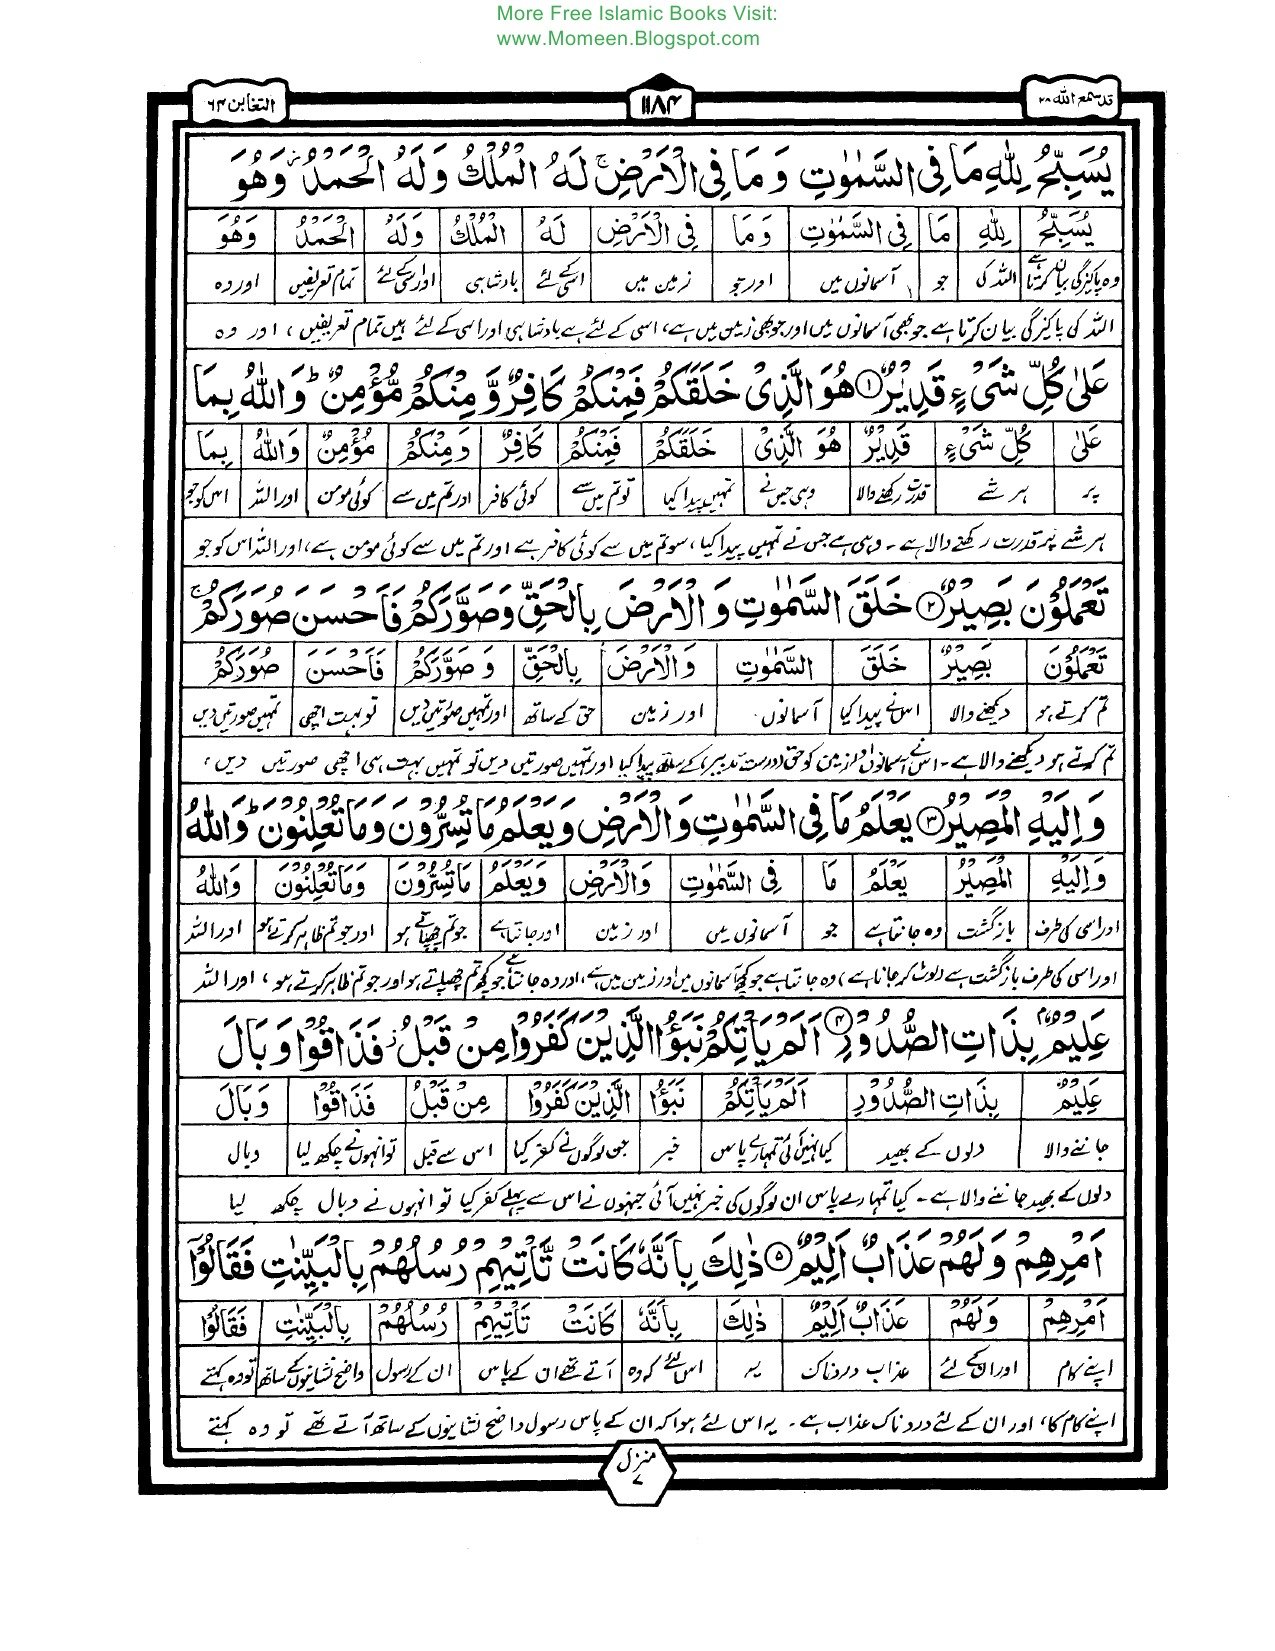 More Free Islamic Books Visit:
www.Momeen.Blogspot.com
قد سمع الله ۲۸ ۱۱۸۴ التغابن ۶۴
يُسَبِّحُ لِلّٰهِ مَا فِى السَّمٰوٰتِ وَ مَا فِى الْاَرْضِ ۚ لَهُ الْمُلْكُ وَ لَهُ الْحَمْدُ ۫ وَ هُوَ
يُسَبِّحُ لِلّٰهِ مَا فِى السَّمٰوٰتِ وَ مَا فِى الْاَرْضِ لَهُ الْمُلْكُ وَلَهُ الْحَمْدُ وَهُوَ
وہ پاکیزگی بیان کرتا ہے اللہ کی جو آسمانوں میں اور جو زمین میں اسی کے لئے بادشاہی اور اسی کے لئے تمام تعریفیں اور وہ
اللہ کی پاکیزگی بیان کرتا ہے جو بھی آسمانوں میں اور جو بھی زمین میں ہے، اسی کے لئے ہے بادشاہی اور اسی کے لئے ہیں تمام تعریفیں، اور وہ
عَلٰى كُلِّ شَىْءٍ قَدِيْرٌ ۱ هُوَ الَّذِىْ خَلَقَكُمْ فَمِنْكُمْ كَافِرٌ وَّ مِنْكُمْ مُّؤْمِنٌ ؕ وَ اللّٰهُ بِمَا
عَلٰى كُلِّ شَىْءٍ قَدِيْرٌ هُوَ الَّذِىْ خَلَقَكُمْ فَمِنْكُمْ كَافِرٌ وَمِنْكُمْ مُؤْمِنٌ وَاللّٰهُ بِمَا
پر ہر شے قدرت رکھنے والا وہی جس نے تمہیں پیدا کیا تو تم میں سے کوئی کافر اور تم میں سے کوئی مومن اور اللہ اس کو جو
ہر شے پر قدرت رکھنے والا ہے۔ وہی ہے جس نے تمہیں پیدا کیا، سو تم میں سے کوئی کافر ہے اور تم میں سے کوئی مومن ہے، اور اللہ اس کو جو
تَعْمَلُوْنَ بَصِيْرٌ ۲ خَلَقَ السَّمٰوٰتِ وَ الْاَرْضَ بِالْحَقِّ وَصَوَّرَكُمْ فَاَحْسَنَ صُوَرَكُمْ ۚ
تَعْمَلُوْنَ بَصِيْرٌ خَلَقَ السَّمٰوٰتِ وَالْاَرْضَ بِالْحَقِّ وَ صَوَّرَكُمْ فَاَحْسَنَ صُوَرَكُمْ
تم کرتے ہو دیکھنے والا اس نے پیدا کیا آسمانوں اور زمین حق کے ساتھ اور تمہیں صورتیں دیں تو بہت اچھی تمہیں صورتیں دیں
تم کرتے ہو دیکھنے والا ہے۔ اس نے آسمانوں اور زمین کو حق (درست تدبیر) کے ساتھ پیدا کیا اور تمہیں صورتیں دیں تو تمہیں بہت ہی اچھی صورتیں دیں،
وَ اِلَيْهِ الْمَصِيْرُ ۳ يَعْلَمُ مَا فِى السَّمٰوٰتِ وَالْاَرْضِ وَيَعْلَمُ مَا تُسِرُّوْنَ وَمَا تُعْلِنُوْنَ ؕ وَاللّٰهُ
وَ اِلَيْهِ الْمَصِيْرُ يَعْلَمُ مَا فِى السَّمٰوٰتِ وَالْاَرْضِ وَيَعْلَمُ مَا تُسِرُّوْنَ وَمَا تُعْلِنُوْنَ وَاللّٰهُ
اور اسی کی طرف بازگشت وہ جانتا ہے جو آسمانوں میں اور زمین اور جانتا ہے جو تم چھپاتے ہو اور جو تم ظاہر کرتے ہو اور اللہ
اور اسی کی طرف بازگشت ہے (لوٹ کر جانا ہے) وہ جانتا ہے جو کچھ آسمانوں میں اور زمین میں ہے، اور وہ جانتا ہے جو کچھ تم چھپاتے ہو اور جو تم ظاہر کرتے ہو، اور اللہ
عَلِيْمٌۢ بِذَاتِ الصُّدُوْرِ ۴ اَلَمْ يَاْتِكُمْ نَبَؤُا الَّذِيْنَ كَفَرُوْا مِنْ قَبْلُ ۫ فَذَاقُوْا وَ بَالَ
عَلِيْمٌ بِذَاتِ الصُّدُوْرِ اَلَمْ يَاْتِكُمْ نَبَؤُا الَّذِيْنَ كَفَرُوْا مِنْ قَبْلُ فَذَاقُوْا وَ بَالَ
جاننے والا دلوں کے بھید کیا نہیں آئی تمہارے پاس خبر جن لوگوں نے کفر کیا اس سے قبل تو انہوں نے چکھ لیا وبال
دلوں کے بھید جاننے والا ہے۔ کیا تمہارے پاس ان لوگوں کی خبر نہیں آئی جنہوں نے اس سے پہلے کفر کیا تو انہوں نے وبال چکھ لیا
اَمْرِهِمْ وَ لَهُمْ عَذَابٌ اَلِيْمٌ ۵ ذٰلِكَ بِاَنَّهٗ كَانَتْ تَّاْتِيْهِمْ رُسُلُهُمْ بِالْبَيِّنٰتِ فَقَالُوْۤا
اَمْرِهِمْ وَ لَهُمْ عَذَابٌ اَلِيْمٌ ذٰلِكَ بِاَنَّهٗ كَانَتْ تَاْتِيْهِمْ رُسُلُهُمْ بِالْبَيِّنٰتِ فَقَالُوْا
اپنے کام اور ان کے لئے عذاب دردناک یہ اس لئے کہ وہ آتے تھے ان کے پاس ان کے رسول واضح نشانیوں کے ساتھ تو وہ کہتے
اپنے کام کا، اور ان کے لئے دردناک عذاب ہے۔ یہ اس لئے ہوا کہ ان کے پاس رسول واضح نشانیوں کے ساتھ آتے تھے تو وہ کہتے
منزل ۷